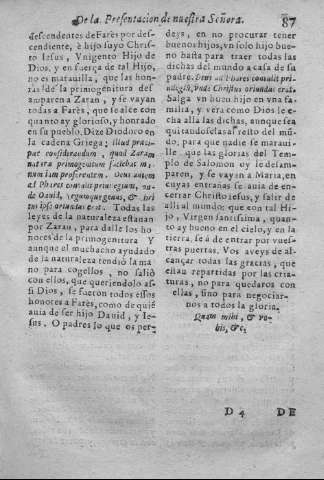 De la Presentacion de nuestra Señora. 87
descendentes de Farès por des-
cendiente, è hijo suyo Chris-
to Iesus, Vnigento Hijo de
Dios, y en fuerça de tal Hijo,
no es marauilla, que las hon-
ras de la primogenitura des
amparen a Zaran, y se vayan
todas a Farès, que se alce con
quanto ay glorioso, y honrado
en su pueblo. Dize Diodoro en
la cadena Griega: illud præci-
pue considerandum, quod Zaram
natura primogenitum faciebat
nam iam proferentem. Deus autem
ad Phares
de Dauid,
tus ipse oriundus erat. Todas las
leyes de la naturaleza estauan
por Zaran, para dalle los ho
nores de la primogenitura Y
aunque el muchacho ayudado
de la naturaleza tendiò la ma
no para cogellos, no saliò
con ellos, que queriendolo as-
si Dios, se fueron todos essos
honores a Farès, como de quiẽ
auia de ser hijo Dauid, y Ie-
sus. O padres lo que os per-
deys, en no procurar tener
buenos hijos, vn solo hijo bue-
no basta para traer todas las
dichas del mundo a casa de su
padre. Deus ad Phares conualit pri-
uilegia, vnde Christus oriundus erat.
Salga vn buen hijo en vna fa-
milia, y verà como Dios le e-
cha alla las dichas, aunque sea
quitandoselas al resto del mũ-
do; para que nadie se maraui-
lle que las glorias del Tem-
plo de Salomon oy le desam-
paren, y se vayan a Maria, en
cuyas entrañas se auia de en-
cerrar Christo Iesus, y salir de
ella al mundo: que con tal Hi-
jo, Virgen santissima, quan-
to ay bueno en el cielo, y en la
tierra, se à de entrar por vues-
tras puertas. Vos aveys de al-
cançar todas las gracias, que
estàn repartidas por las cria-
turas, no para quedaros con
ellas, sino para negociar-
nos a todos la gloria.
Quam mihi, & vo-
bis, &c.
D 4 DE